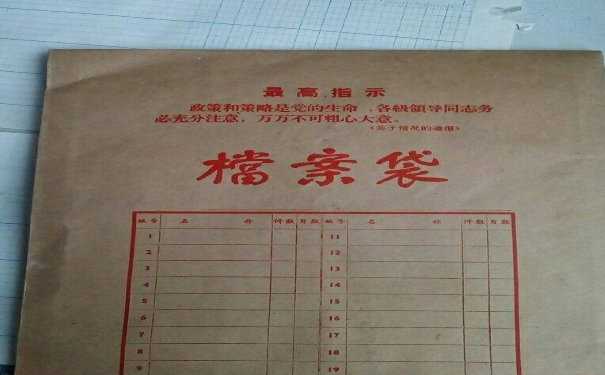 最高指示
政策和策略是党的生命,各級領导同志务
必充分注意,万万不可粗心大意。
《关于情况的通报》
檔案袋
编号 名称 件数 页数 编号 名称 件数 页数
1 11
2 12
3 13
4 14
5 15
6 16
7 17
8 18
9 19